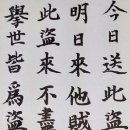 今日送此盜
明日來他賊
此盜來不盡
舉世皆為盜